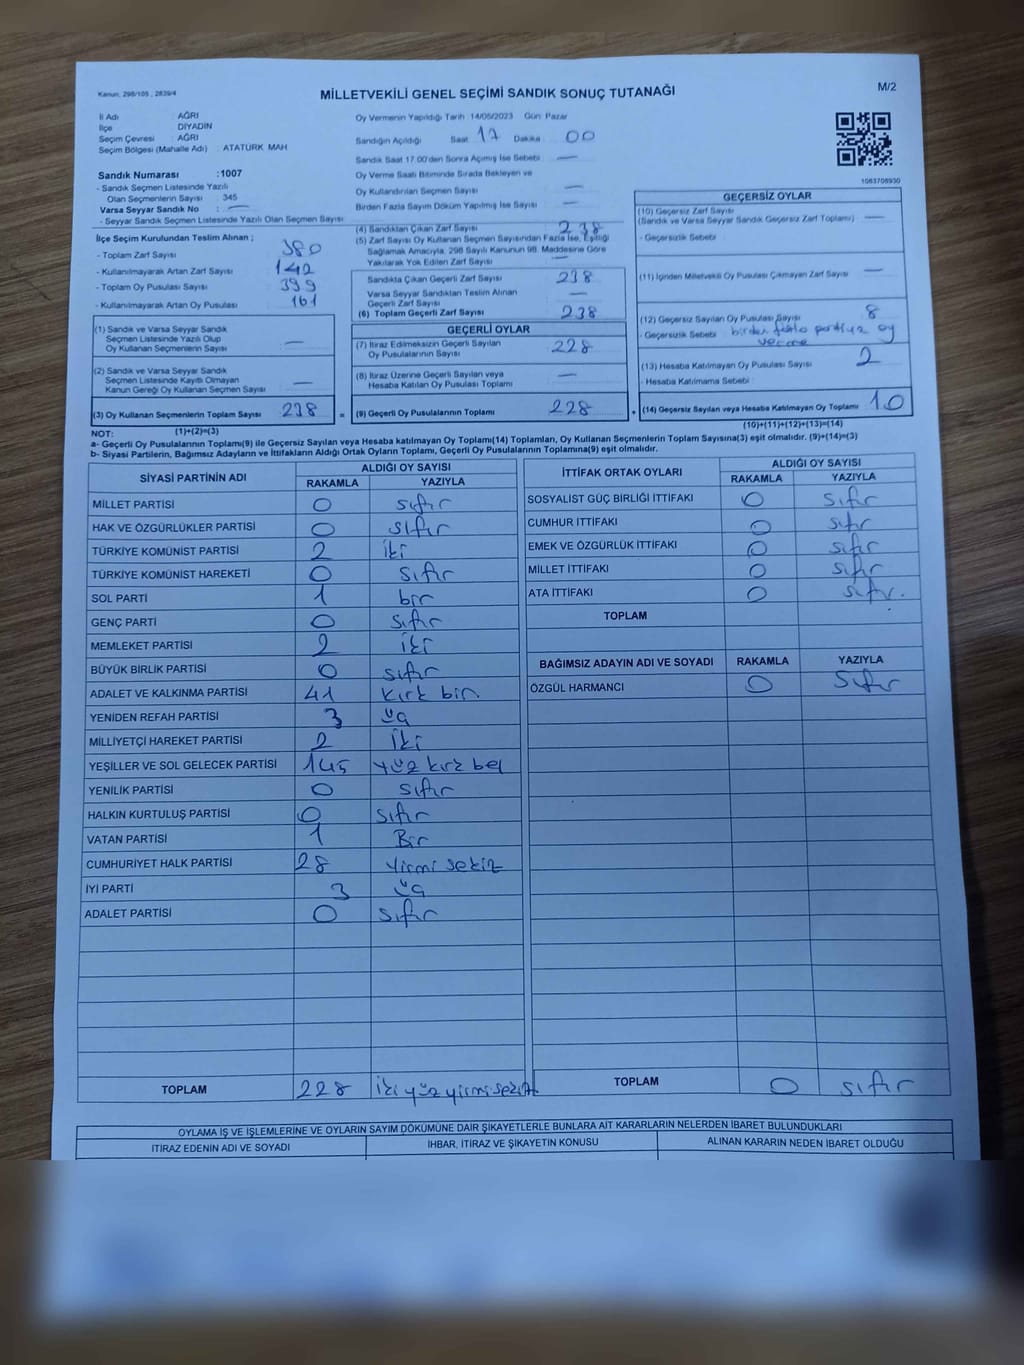 Kanun, 298/105 , 2839/4
MİLLETVEKİLİ GENEL SEÇİMİ SANDIK SONUÇ TUTANAĞI
M/2
İl Adı : AĞRI
İlçe : DİYADİN
Seçim Çevresi : AĞRI
Seçim Bölgesi (Mahalle Adı) : ATATÜRK MAH
Sandık Numarası :1007
- Sandık Seçmen Listesinde Yazılı
Olan Seçmenlerin Sayısı 345
Varsa Seyyar Sandık No : —
- Seyyar Sandık Seçmen Listesinde Yazılı Olan Seçmen Sayısı
İlçe Seçim Kurulundan Teslim Alınan ;
- Toplam Zarf Sayısı 380
- Kullanılmayarak Artan Zarf Sayısı 142
- Toplam Oy Pusulası Sayısı 399
- Kullanılmayarak Artan Oy Pusulası 161
(1) Sandık ve Varsa Seyyar Sandık
Seçmen Listesinde Yazılı Olup
Oy Kullanan Seçmenlerin Sayısı —
(2) Sandık ve Varsa Seyyar Sandık
Seçmen Listesinde Kayıtlı Olmayan
Kanun Gereği Oy Kullanan Seçmen Sayısı —
(3) Oy Kullanan Seçmenlerin Toplam Sayısı 238
(1)+(2)=(3)
Oy Vermenin Yapıldığı Tarih 14/05/2023 Gün: Pazar
Sandığın Açıldığı Saat 17 Dakika 00
Sandık Saat 17:00'den Sonra Açımış İse Sebebi —
Oy Verme Saati Bitiminde Sırada Bekleyen ve
Oy Kullandırılan Seçmen Sayısı —
Birden Fazla Sayım Döküm Yapılmış İse Sayısı —
(4) Sandıktan Çıkan Zarf Sayısı 238
(5) Zarf Sayısı Oy Kullanan Seçmen Sayısından Fazla İse, Eşitliği
Sağlamak Amacıyla, 298 Sayılı Kanunun 98. Maddesine Göre
Yakılarak Yok Edilen Zarf Sayısı —
Sandıkta Çıkan Geçerli Zarf Sayısı 238
Varsa Seyyar Sandıktan Teslim Alınan
Geçerli Zarf Sayısı —
(6) Toplam Geçerli Zarf Sayısı 238
GEÇERLİ OYLAR
(7) İtiraz Edilmeksizin Geçerli Sayılan
Oy Pusulalarının Sayısı 228
(8) İtiraz Üzerine Geçerli Sayılan veya
Hesaba Katılan Oy Pusulası Toplamı —
= (9) Geçerli Oy Pusulalarının Toplamı 228
1083708930
GEÇERSİZ OYLAR
(10) Geçersiz Zarf Sayısı
(Sandık ve Varsa Seyyar Sandık Geçersiz Zarf Toplamı) —
- Geçersizlik Sebebi :
(11) İçinden Milletvekili Oy Pusulası Çıkmayan Zarf Sayısı —
(12) Geçersiz Sayılan Oy Pusulası Sayısı 8
- Geçersizlik Sebebi birden fazla partiye oy
verme
(13) Hesaba Katılmayan Oy Pusulası 2
- Hesaba Katılmama Sebebi :
+ (14) Geçersiz Sayılan veya Hesaba Katılmayan Oy Toplamı 10
(10)+(11)+(12)+(13)=(14)
NOT:
a- Geçerli Oy Pusulalarının Toplamı(9) ile Geçersiz Sayılan veya Hesaba katılmayan Oy Toplamı(14) Toplamları, Oy Kullanan Seçmenlerin Toplam Sayısına(3) eşit olmalıdır. (9)+(14)=(3)
b- Siyasi Partilerin, Bağımsız Adayların ve İttifakların Aldığı Ortak Oyların Toplamı, Geçerli Oy Pusulalarının Toplamına(9) eşit olmalıdır.
SİYASİ PARTİNİN ADI ALDIĞI OY SAYISI
RAKAMLA YAZIYLA
MİLLET PARTİSİ 0 sıfır
HAK VE ÖZGÜRLÜKLER PARTİSİ 0 sıfır
TÜRKİYE KOMÜNİST PARTİSİ 2 iki
TÜRKİYE KOMÜNİST HAREKETİ 0 sıfır
SOL PARTİ 1 bir
GENÇ PARTİ 0 sıfır
MEMLEKET PARTİSİ 2 iki
BÜYÜK BİRLİK PARTİSİ 0 sıfır
ADALET VE KALKINMA PARTİSİ 41 kırk bir
YENİDEN REFAH PARTİSİ 3 üç
MİLLİYETÇİ HAREKET PARTİSİ 2 iki
YEŞİLLER VE SOL GELECEK PARTİSİ 145 yüz kırk beş
YENİLİK PARTİSİ 0 sıfır
HALKIN KURTULUŞ PARTİSİ 0 sıfır
VATAN PARTİSİ 1 Bir
CUMHURİYET HALK PARTİSİ 28 yirmi sekiz
İYİ PARTİ 3 üç
ADALET PARTİSİ 0 sıfır
TOPLAM 228 iki yüz yirmi sekiz
İTTİFAK ORTAK OYLARI ALDIĞI OY SAYISI
RAKAMLA YAZIYLA
SOSYALİST GÜÇ BİRLİĞİ İTTİFAKI 0 sıfır
CUMHUR İTTİFAKI 0 sıfır
EMEK VE ÖZGÜRLÜK İTTİFAKI 0 sıfır
MİLLET İTTİFAKI 0 sıfır
ATA İTTİFAKI 0 sıfır.
TOPLAM
BAĞIMSIZ ADAYIN ADI VE SOYADI RAKAMLA YAZIYLA
ÖZGÜL HARMANCI 0 sıfır
TOPLAM 0 sıfır
OYLAMA İŞ VE İŞLEMLERİNE VE OYLARIN SAYIM DÖKÜMÜNE DAİR ŞİKAYETLERLE BUNLARA AİT KARARLARIN NELERDEN İBARET BULUNDUKLARI
İTİRAZ EDENİN ADI VE SOYADI İHBAR, İTİRAZ VE ŞİKAYETİN KONUSU ALINAN KARARIN NEDEN İBARET OLDUĞU